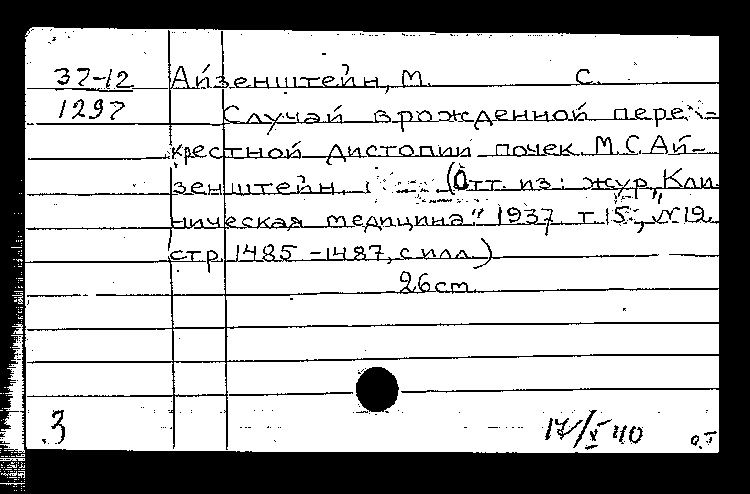 37-12 Айзенштейн, М. С.
1297 Случай врожденной пере-
крестной дистопии почек. М.С. Ай-
зенштейн. (Отт. из: жур. „Кли
ническая медицина" 1937 т. 15, №19.
стр. 1485-1487, с илл.)
26cm.
3 17/X 40 о.т